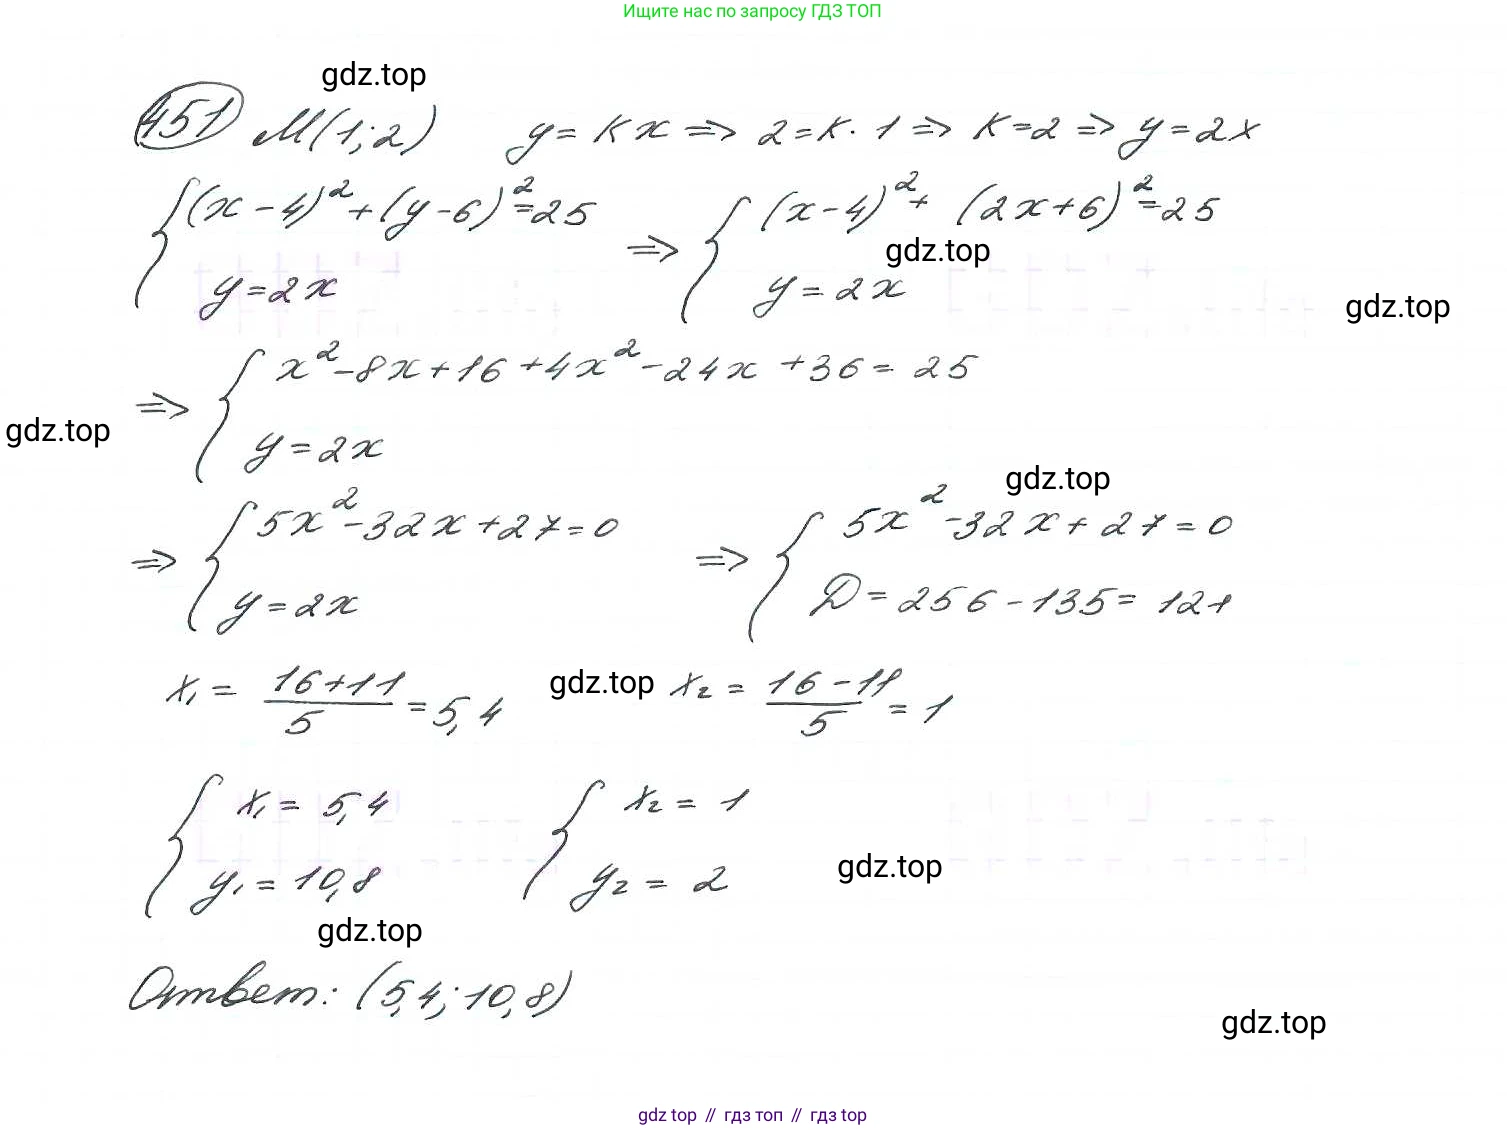 Ищите нас по запросу ГДЗ ТОП
gdz.top
451 M(1;2) y = kx => 2 = k · 1 => k = 2 => y = 2x
{ (x - 4)² + (y - 6)² = 25 => { (x - 4)² + (2x + 6)² = 25
gdz.top
y = 2x y = 2x
gdz.top
=> { x² - 8x + 16 + 4x² - 24x + 36 = 25
gdz.top
y = 2x
gdz.top
=> { 5x² - 32x + 27 = 0 => { 5x² - 32x + 27 = 0
y = 2x Д = 256 - 135 = 121
x₁ = (16 + 11)/5 = 5,4 gdz.top x₂ = (16 - 11)/5 = 1
{ x₁ = 5,4 { x₂ = 1
y₁ = 10,8 y₂ = 2 gdz.top
gdz.top
Ответ: (5,4; 10,8)
gdz.top
gdz top // гдз топ // гдз top